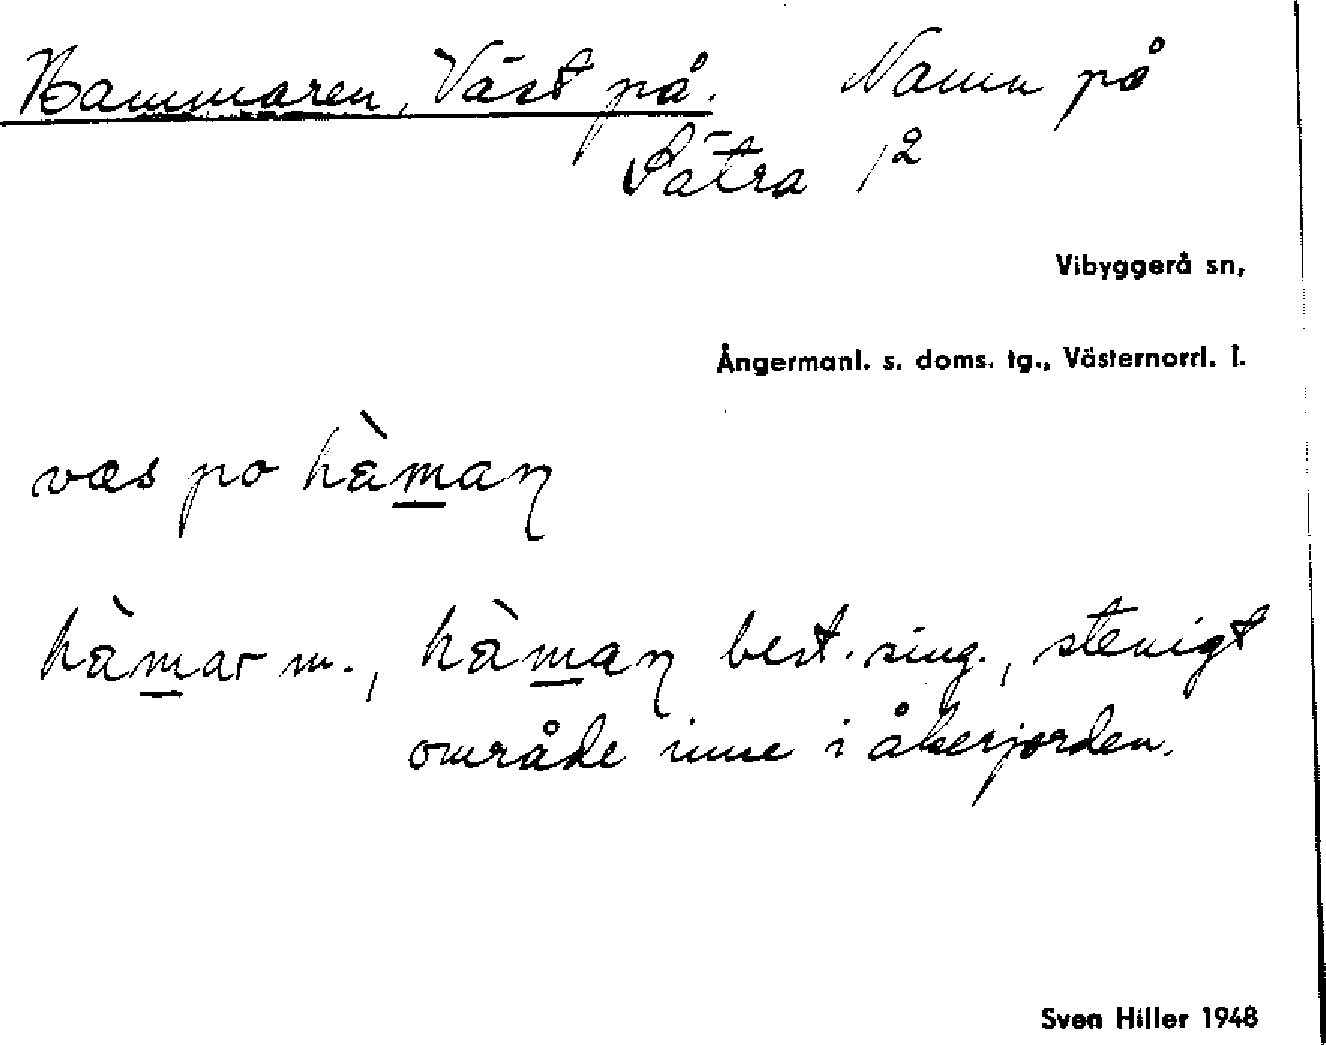 Hammaren, Väst på. Namn på
Sätra 1²
Vibyggerå sn,
Ångermanl. s. doms. tg., Västernorrl. l.
væs po hàmaɳ
hàmar m., hàmaɳ best. sing., stenigt
område inne i åkerjorden.
Sven Hiller 1948